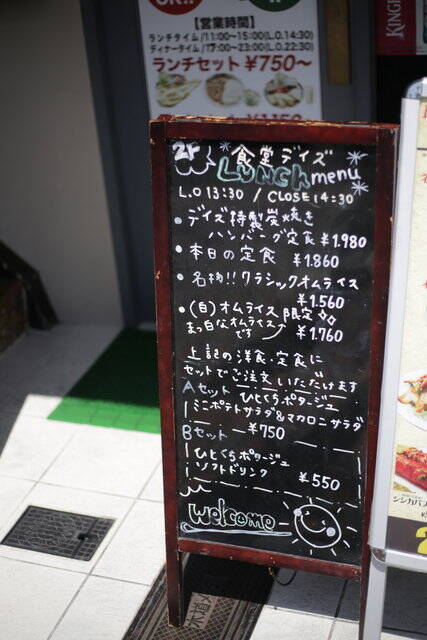 【営業時間】
ランチタイム/11:00〜15:00(L.O.14:30)
ディナータイム/17:00〜23:00(L.O.22:30)
ランチセット ¥750〜
KING
2F
食堂デイズ
LUNCH menu
L.O 13:30 / CLOSE 14:30
• デイズ特製炭焼き
ハンバーグ定食 ¥1.980
• 本日の定食 ¥1.860
• 名物!! クラシックオムライス
¥1.560
• (白)オムライス 限定
まっ白なオムライス
です ¥1.760
上記の洋食・定食に
セットでご注文いただけます
Aセット ひとくちポタージュ
ミニポテトサラダ&マカロニサラダ
¥750
Bセット
ひとくちポタージュ
ソフトドリンク ¥550
welcome